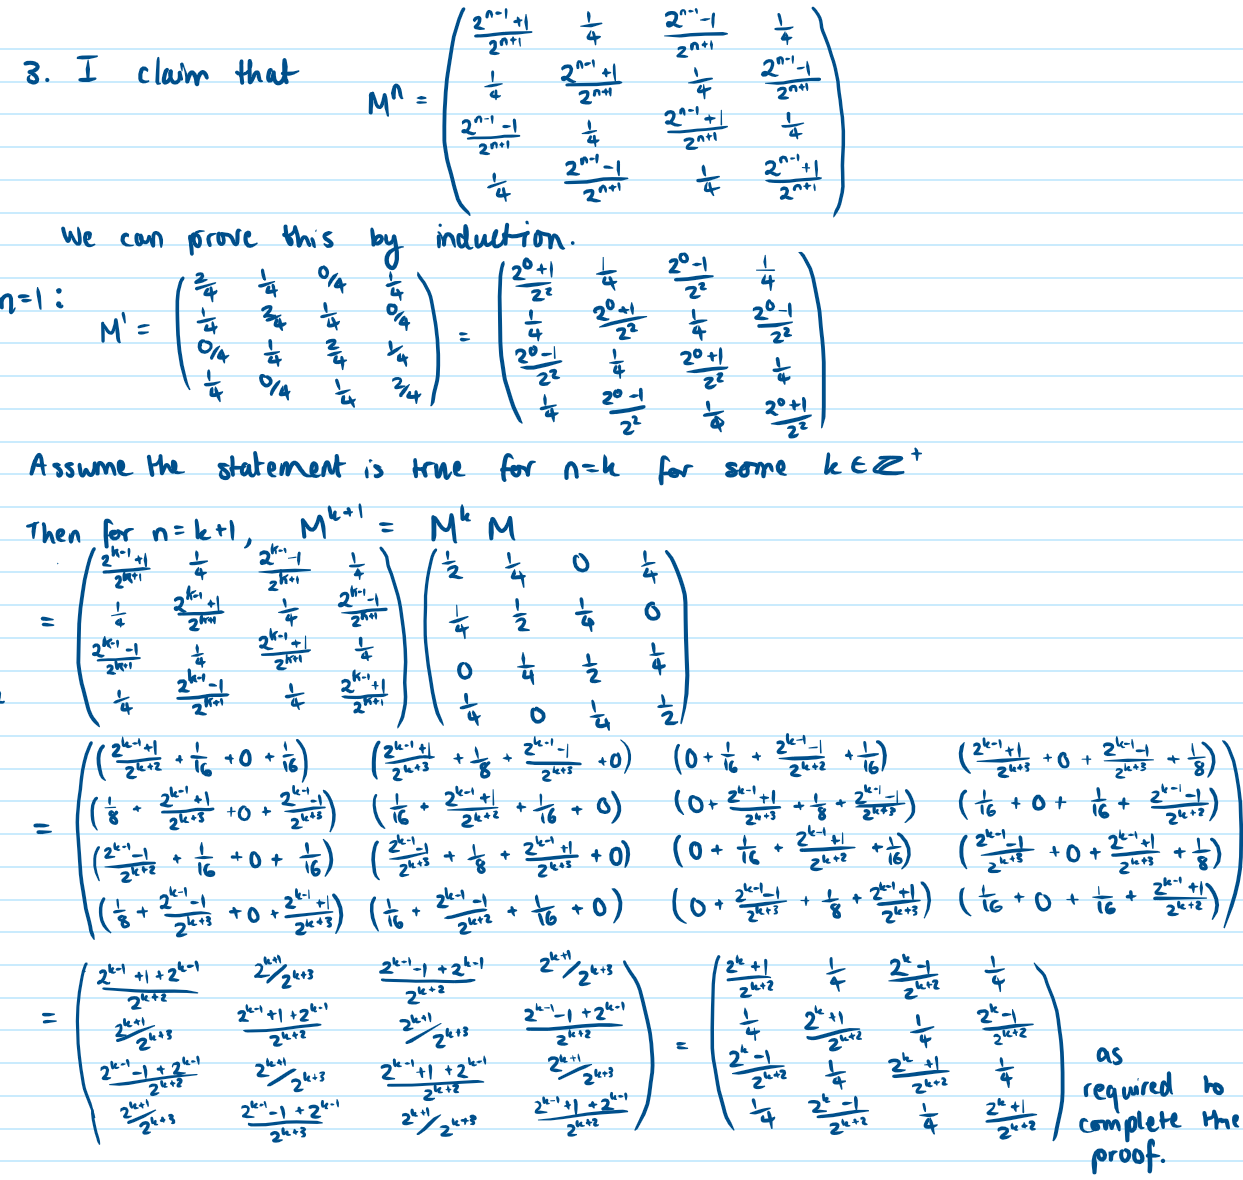 3. I claim that M^n = ( (2^{n-1}+1)/2^{n+1}  1/4  (2^{n-1}-1)/2^{n+1}  1/4
1/4  (2^{n-1}+1)/2^{n+1}  1/4  (2^{n-1}-1)/2^{n+1}
(2^{n-1}-1)/2^{n+1}  1/4  (2^{n-1}+1)/2^{n+1}  1/4
1/4  (2^{n-1}-1)/2^{n+1}  1/4  (2^{n-1}+1)/2^{n+1} )
We can prove this by induction.
n=1: M^1 = ( 2/4  1/4  0/4  1/4 ; 1/4  2/4  1/4  0/4 ; 0/4  1/4  2/4  1/4 ; 1/4  0/4  1/4  2/4 ) = ( (2^0+1)/2^2  1/4  (2^0-1)/2^2  1/4 ; 1/4  (2^0+1)/2^2  1/4  (2^0-1)/2^2 ; (2^0-1)/2^2  1/4  (2^0+1)/2^2  1/4 ; 1/4  (2^0-1)/2^2  1/4  (2^0+1)/2^2 )
Assume the statement is true for n=k for some k ∈ ℤ^+
Then for n=k+1, M^{k+1} = M^k M
= ( (2^{k-1}+1)/2^{k+1}  1/4  (2^{k-1}-1)/2^{k+1}  1/4 ; 1/4  (2^{k-1}+1)/2^{k+1}  1/4  (2^{k-1}-1)/2^{k+1} ; (2^{k-1}-1)/2^{k+1}  1/4  (2^{k-1}+1)/2^{k+1}  1/4 ; 1/4  (2^{k-1}-1)/2^{k+1}  1/4  (2^{k-1}+1)/2^{k+1} ) ( 1/2  1/4  0  1/4 ; 1/4  1/2  1/4  0 ; 0  1/4  1/2  1/4 ; 1/4  0  1/4  1/2 )
= ( ((2^{k-1}+1)/2^{k+2} + 1/16 + 0 + 1/16)  ((2^{k-1}+1)/2^{k+3} + 1/8 + (2^{k-1}-1)/2^{k+3} + 0)  (0 + 1/16 + (2^{k-1}-1)/2^{k+2} + 1/16)  ((2^{k-1}+1)/2^{k+3} + 0 + (2^{k-1}-1)/2^{k+3} + 1/8)
(1/8 + (2^{k-1}+1)/2^{k+3} + 0 + (2^{k-1}-1)/2^{k+3})  (1/16 + (2^{k-1}+1)/2^{k+2} + 1/16 + 0)  (0 + (2^{k-1}+1)/2^{k+3} + 1/8 + (2^{k-1}-1)/2^{k+3})  (1/16 + 0 + 1/16 + (2^{k-1}-1)/2^{k+2})
((2^{k-1}-1)/2^{k+2} + 1/16 + 0 + 1/16)  ((2^{k-1}-1)/2^{k+3} + 1/8 + (2^{k-1}+1)/2^{k+3} + 0)  (0 + 1/16 + (2^{k-1}+1)/2^{k+2} + 1/16)  ((2^{k-1}-1)/2^{k+3} + 0 + (2^{k-1}+1)/2^{k+3} + 1/8)
(1/8 + (2^{k-1}-1)/2^{k+3} + 0 + (2^{k-1}+1)/2^{k+3})  (1/16 + (2^{k-1}-1)/2^{k+2} + 1/16 + 0)  (0 + (2^{k-1}-1)/2^{k+3} + 1/8 + (2^{k-1}+1)/2^{k+3})  (1/16 + 0 + 1/16 + (2^{k-1}+1)/2^{k+2}) )
= ( (2^{k-1}+1+2^{k-1})/2^{k+2}  2^{k+1}/2^{k+3}  (2^{k-1}-1+2^{k-1})/2^{k+2}  2^{k+1}/2^{k+3} ; 2^{k+1}/2^{k+3}  (2^{k-1}+1+2^{k-1})/2^{k+2}  2^{k+1}/2^{k+3}  (2^{k-1}-1+2^{k-1})/2^{k+2} ; (2^{k-1}-1+2^{k-1})/2^{k+2}  2^{k+1}/2^{k+3}  (2^{k-1}+1+2^{k-1})/2^{k+2}  2^{k+1}/2^{k+3} ; 2^{k+1}/2^{k+3}  (2^{k-1}-1+2^{k-1})/2^{k+3}  2^{k+1}/2^{k+3}  (2^{k-1}+1+2^{k-1})/2^{k+2} ) = ( (2^k+1)/2^{k+2}  1/4  (2^k-1)/2^{k+2}  1/4 ; 1/4  (2^k+1)/2^{k+2}  1/4  (2^k-1)/2^{k+2} ; (2^k-1)/2^{k+2}  1/4  (2^k+1)/2^{k+2}  1/4 ; 1/4  (2^k-1)/2^{k+2}  1/4  (2^k+1)/2^{k+2} )
as
required to
complete the
proof.